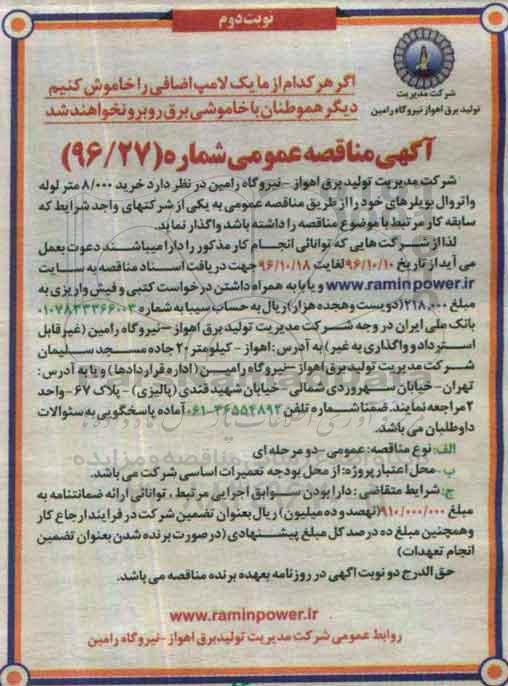 نوبت دوم
شرکت مدیریت
تولید برق اهواز نیروگاه رامین
اگر هر کدام از ما یک لامپ اضافی را خاموش کنیم
دیگر هموطنان با خاموشی برق روبرو نخواهند شد
آگهی مناقصه عمومی شماره (۹۶/۲۷)
شرکت مدیریت تولید برق اهواز - نیروگاه رامین در نظر دارد خرید ۸/۰۰۰ متر لوله
واتروال بویلرهای خود را از طریق مناقصه عمومی به یکی از شرکتهای واجد شرایط که
سابقه کار مرتبط با موضوع مناقصه را داشته باشد واگذار نماید.
لذا از شرکت هایی که توانائی انجام کار مذکور را دارا میباشند دعوت بعمل
می آید از تاریخ ۹۶/۱۰/۱۰ لغایت ۹۶/۱۰/۱۸ جهت دریافت اسناد مناقصه به سایت
www.raminpower.ir و یا با به همراه داشتن درخواست کتبی و فیش واریزی به
مبلغ ۲۱۸.۰۰۰ (دویست و هجده هزار) ریال به حساب سیبا به شماره ۰۱۰۷۸۳۳۳۶۶۰۰۳
بانک ملی ایران در وجه شرکت مدیریت تولید برق اهواز - نیروگاه رامین (غیر قابل
استرداد و واگذاری به غیر) به آدرس: اهواز - کیلومتر ۲۰ جاده مسجد سلیمان
شرکت مدیریت تولید برق اهواز - نیروگاه رامین (اداره قراردادها) و یا به آدرس:
تهران - خیابان سهروردی شمالی - خیابان شهید قندی (پالیزی) - پلاک ۶۷ - واحد
۲ مراجعه نمایند. ضمنا شماره تلفن ۳۶۵۵۴۸۹۲-۰۶۱ آماده پاسخگویی به سئوالات
داوطلبان می باشد.
الف: نوع مناقصه: عمومی - دو مرحله ای
ب - محل اعتبار پروژه: از محل بودجه تعمیرات اساسی شرکت می باشد.
ج: شرایط متقاضی: دارا بودن سوابق اجرایی مرتبط، توانائی ارائه ضمانتنامه به
مبلغ ۹۱۰/۰۰۰/۰۰۰ (نهصد و ده میلیون) ریال بعنوان تضمین شرکت در فرایند ارجاع کار
و همچنین مبلغ ده درصد کل مبلغ پیشنهادی (در صورت برنده شدن بعنوان تضمین
انجام تعهدات)
حق الدرج دو نوبت اگهی در روزنامه بعهده برنده مناقصه می باشد.
www.raminpower.ir
روابط عمومی شرکت مدیریت تولید برق اهواز - نیروگاه رامین